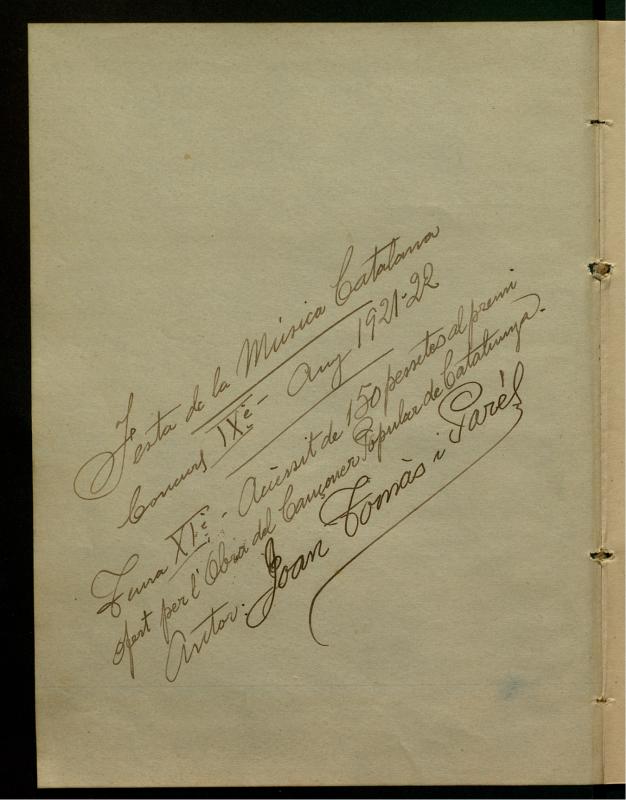 Festa de la Música Catalana
Concurs IXè - Any 1921-22
Tema XIè - Accèssit de 150 pessetes al premi
ofert per l'Obra del Cançoner Popular de Catalunya.
Autor: Joan Tomàs i Parés